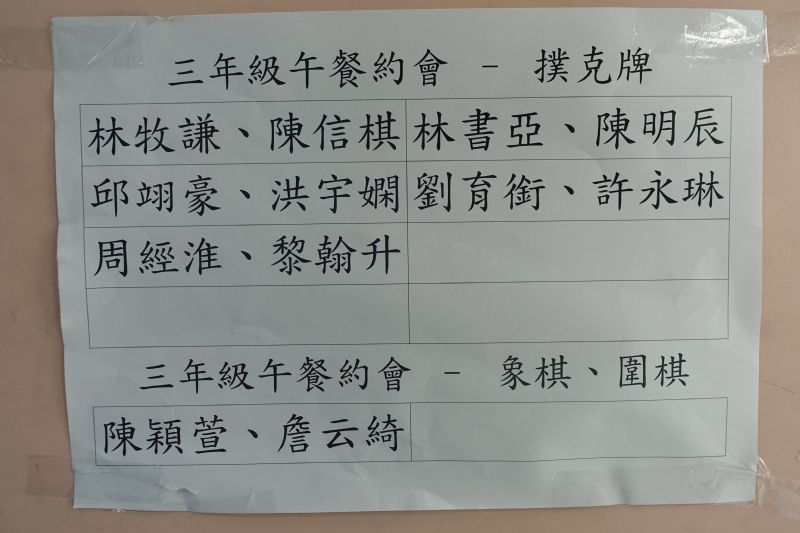 三年級午餐約會 － 撲克牌
林牧謙、陳信棋 林書亞、陳明辰
邱翊豪、洪宇嫻 劉育銜、許永琳
周經淮、黎翰升
三年級午餐約會 － 象棋、圍棋
陳穎萱、詹云綺